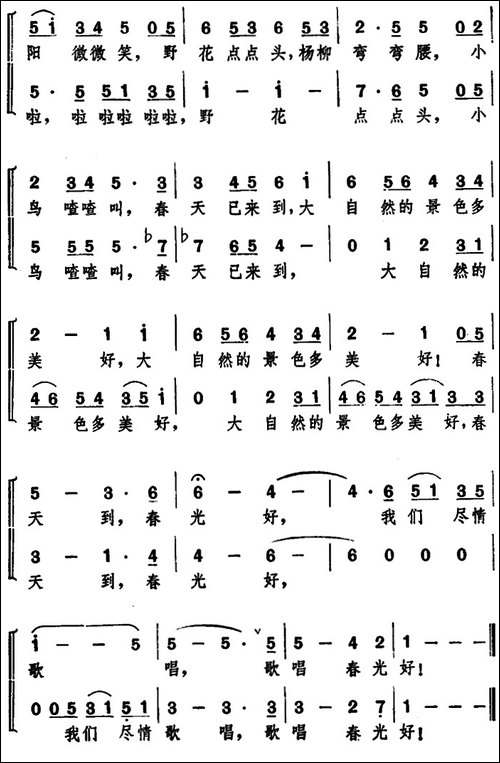 5 i 3 4 5 0 5 | 6 5 3 5 3 5 3 | 2 · 5 5 0 2 |
阳 微微笑，野 花点点头，杨柳 弯 弯腰，小
5 · 5 5 5 1 3 5 | i - i - | 7 · 6 5 0 5 |
啦，啦 啦啦 啦啦，野 花 点 点头，小
2 3 4 5 · 3 | 3 4 5 6 i | 6 5 6 4 3 4 |
鸟 喳喳 叫，春 天 已来 到，大 自 然的 景 色多
5 5 5 5 · ♭7 | ♭7 6 5 4 - | 0 1 2 3 1 |
鸟 喳喳 叫，春 天 已来 到， 大 自 然的
2 - 1 i | 6 5 6 4 3 4 | 2 - 1 0 5 |
美 好，大 自 然的 景 色多 美 好！春
4 6 5 4 3 5 i | 0 1 2 3 1 | 4 6 5 4 3 1 3 3 |
景 色多 美 好， 大 自 然的 景 色多 美 好，春
5 - 3 · 6 | 6 - 4 - | 4 · 6 5 1 3 5 |
天 到，春 光 好， 我 们 尽情
3 - 1 · 4 | 4 - 6 - | 6 0 0 0 |
天 到，春 光 好，
i - - 5 | 5 - 5 · ∨ 5 | 5 - 4 2 | 1 - - - ‖
歌 唱， 歌 唱 春 光 好！
0 0 5 3 1 5 1 | 3 - 3 · 3 | 3 - 2 7 | 1 - - - ‖
我们 尽 情 歌 唱，歌 唱 春光 好！